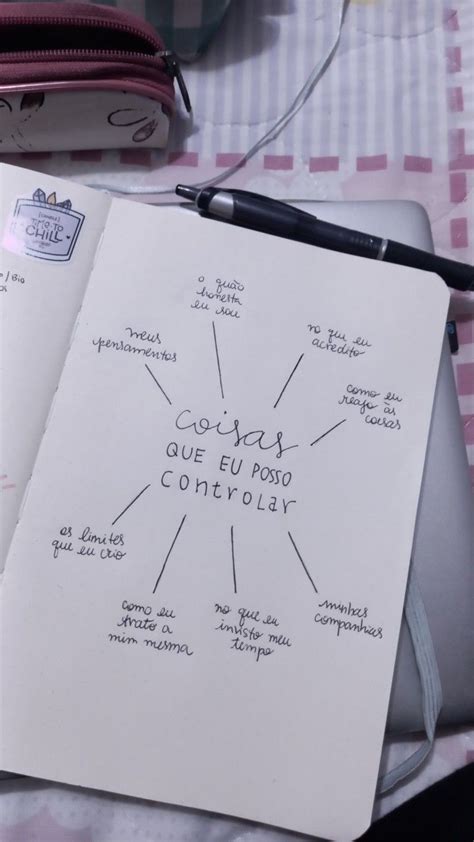 TIME TO
CHILL
/ Bio
o quão
honesta
eu sou
no que eu
acredito
meus
pensamentos
como eu
reajo às
coisas
coisas
QUE EU POSSO
controlar
os limites
que eu crio
como eu
trato a
mim mesma
no que eu
invisto meu
tempo
minhas
companhias